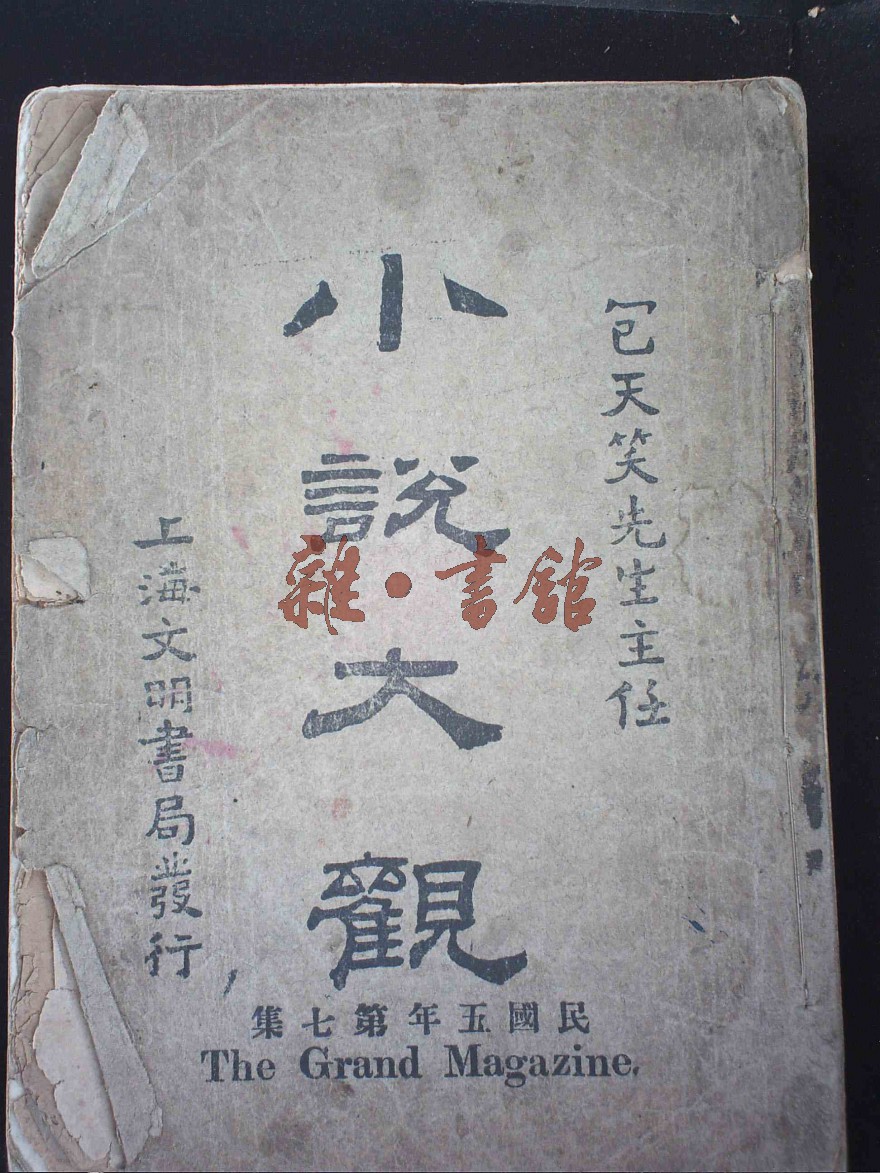 包天笑先生主任
小說大觀
上海文明書局發行
民國五年第七集
The Grand Magazine.
雜·書館